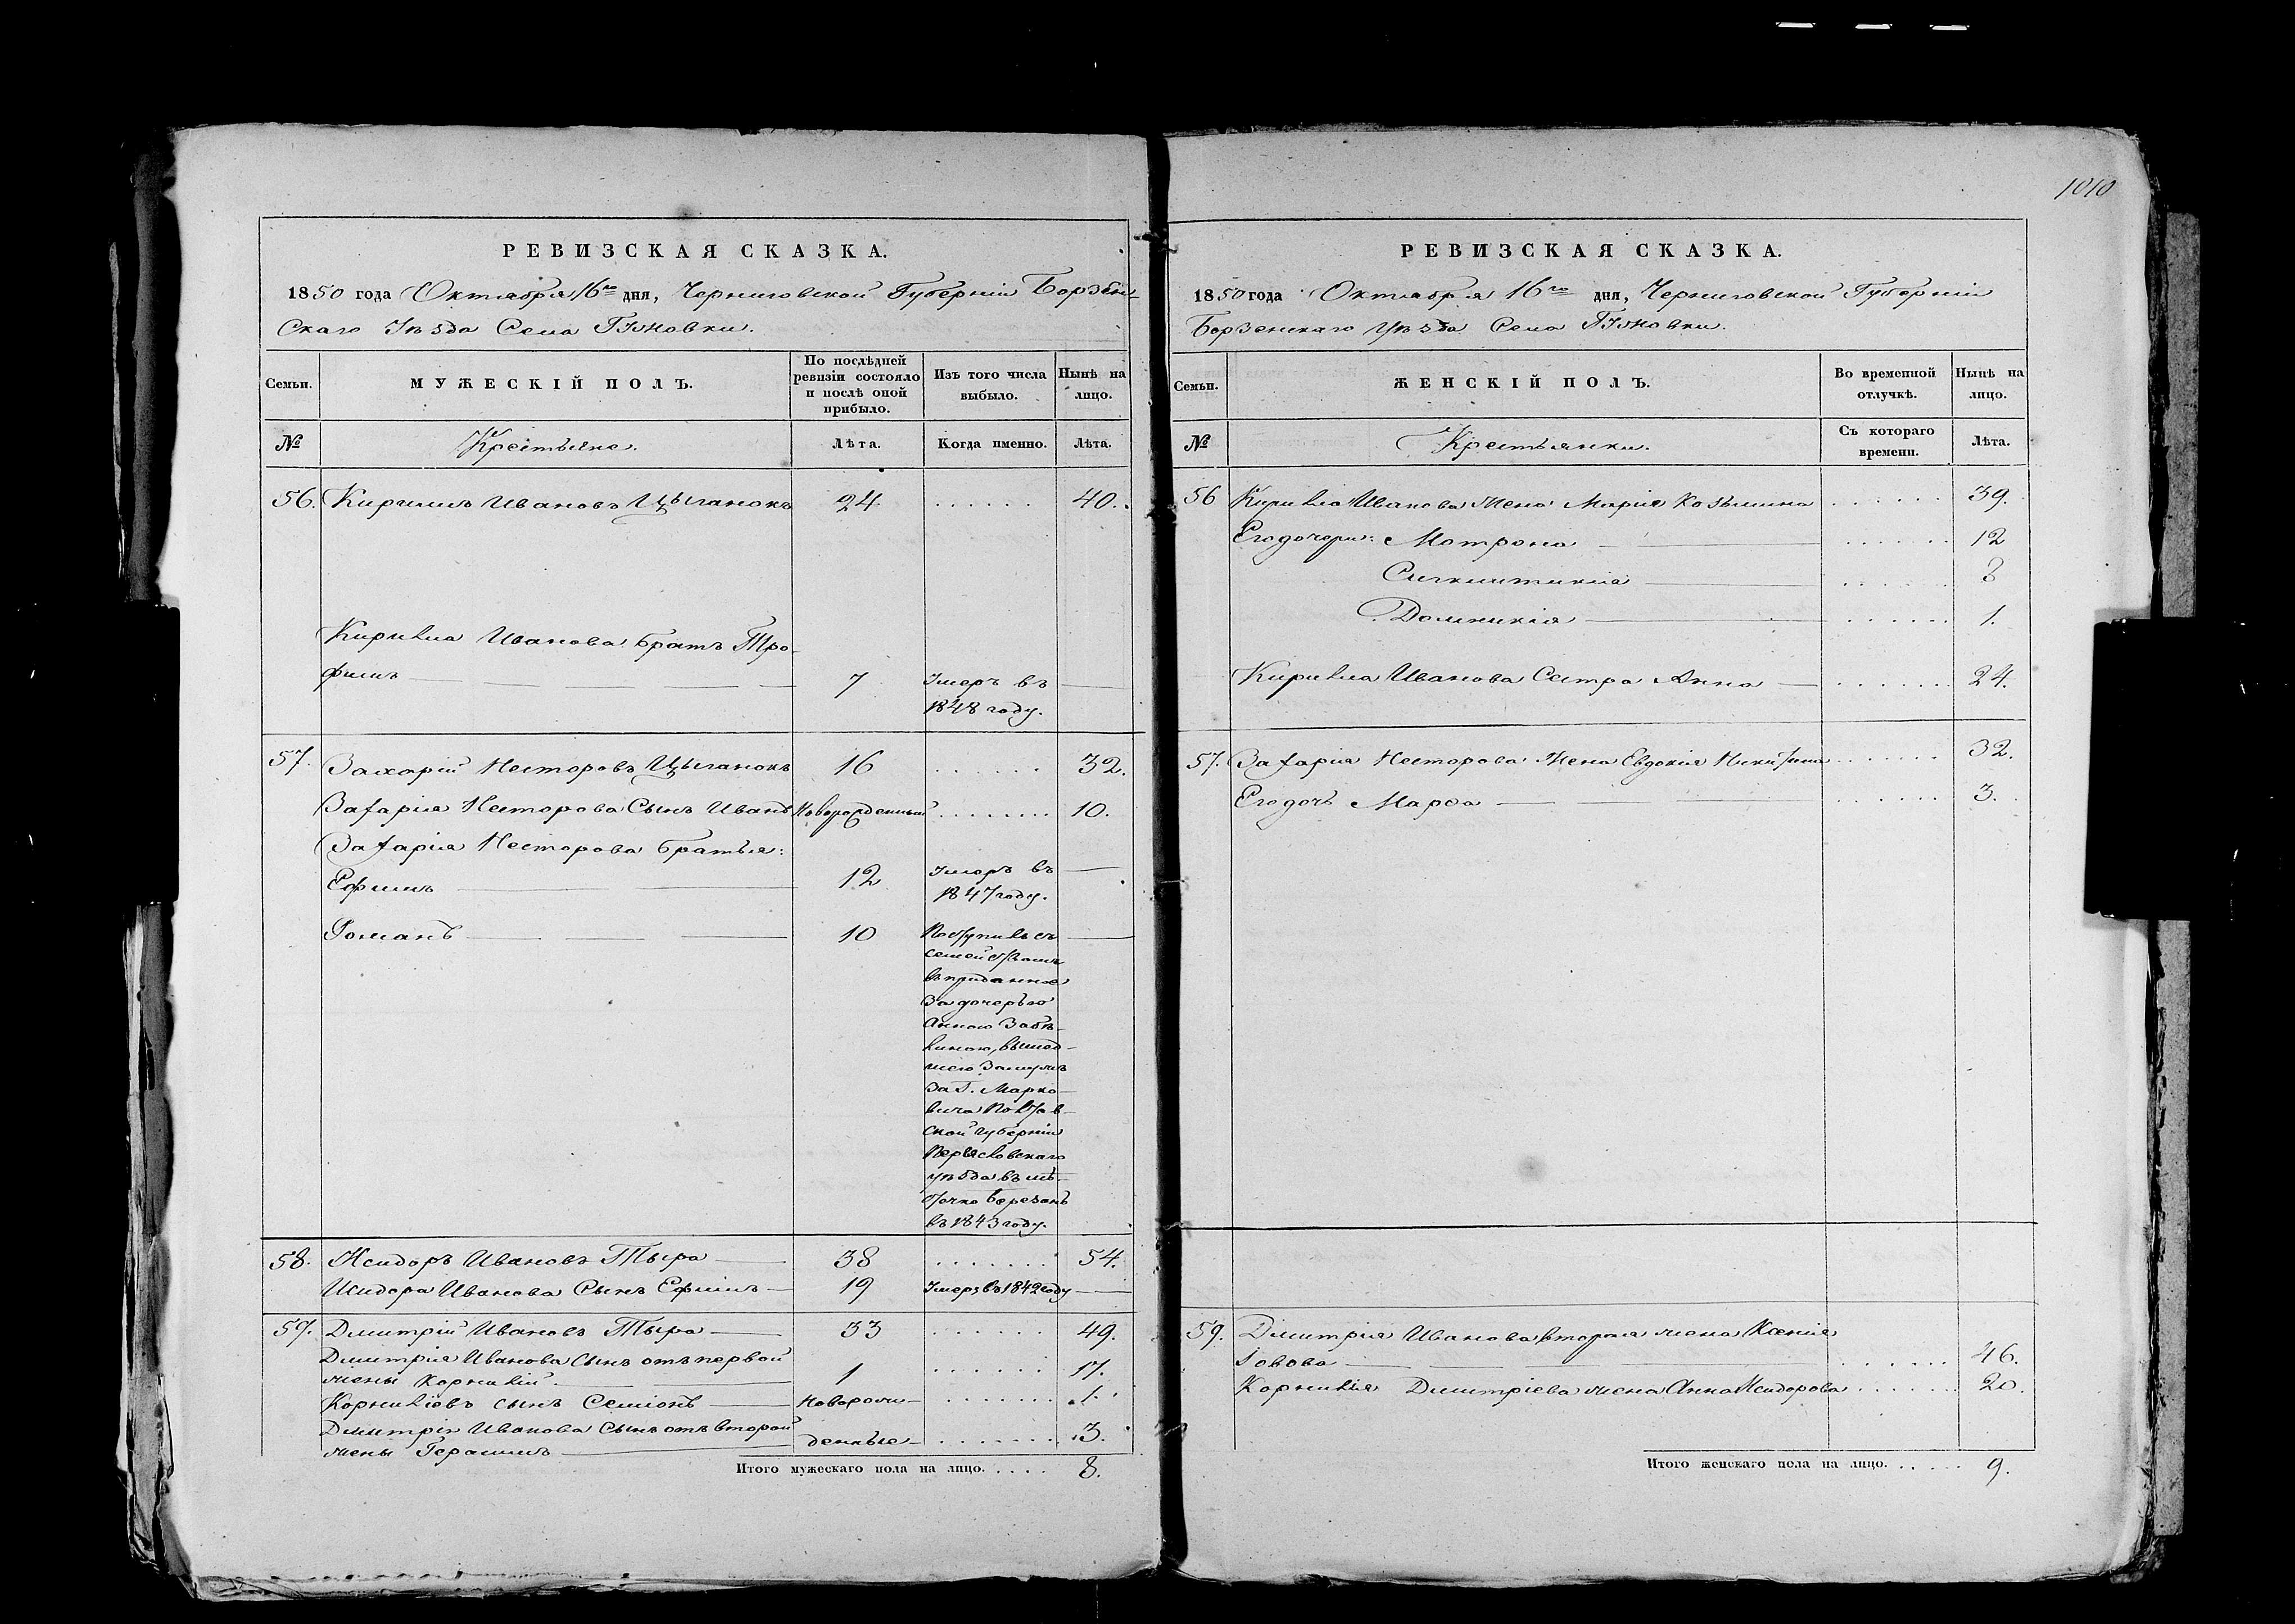 1010
РЕВИЗСКАЯ СКАЗКА.
1850 года Октября 16го дня, Черниговской Губерніи Борзен-
скаго Уѣзда Села
Семьи. МУЖЕСКІЙ ПОЛЪ. По послѣдней ревизіи состояло и послѣ оной прибыло. Изъ того числа выбыло. Нынѣ на лицо.
№ Крестьяне. Лѣта. Когда именно. Лѣта.
56. Кирилъ Ивановъ Цыганокъ 24 . . . . . . 40.
Кирилла Иванова братъ Тро-
фимъ — 7 Умеръ въ —
1848 году.
57. Захарій Несторовъ Цыганокъ 16 . . . . . . 32.
Захарія Несторова Сынъ Иванъ Новорожденный . . . . . . . 10.
Захарія Несторова братья:
Ефимъ — 12 Умеръ въ —
1847 году.
Романъ — 10 Поступилъ съ —
семействомъ
въ приданное
за дочерью
Анною Забѣ-
линою, вышед-
шею замужъ
за Г. Марко-
вича Полтав-
ской губерніи
Переясловскаго
уѣзда въ мѣ-
стечко Березань
въ 1843 году.
58. Исидоръ Ивановъ Тыра — 38 . . . . . . . 54.
Исидора Иванова Сынъ Ефимъ — 19 Умеръ въ 1842 году —
59. Дмитрій Ивановъ Тыра — 33 . . . . . . 49.
Дмитрія Иванова сынъ отъ первой
жены Корнилій — 1 . . . . . . 17.
Корниліевъ сынъ Семіонъ — новорож- . . . . . . . 1.
Дмитрія Иванова Сынъ отъ второй
жены Герасимъ — денные . . . . . . . 3.
Итого мужескаго пола на лицо. . . . . 8.
РЕВИЗСКАЯ СКАЗКА.
1850 года Октября 16го дня, Черниговской Губерніи
Борзенскаго Уѣзда Села
Семьи. ЖЕНСКІЙ ПОЛЪ. Во временной отлучкѣ. Нынѣ на лицо.
№ Крестьянки. Съ котораго времени. Лѣта.
56 Кирилла Иванова Жена Марія Козьмина . . . . . . 39.
Его дочери: Мотрона — . . . . . . 12
Сигклитикия — . . . . . . 8
Домникія — . . . . . . 1.
Кирилла Иванова Сестра Анна — . . . . . . 24.
57. Захарія Несторова Жена Евдокія Никитина . . . . . . 32.
Его дочь Марѳа — . . . . . . 3.
59. Дмитрія Иванова вторая жена Ксенія
Іовова — . . . . . . 46.
Корнилія Дмитріева жена Анна Исидорова . . . . . . 20.
Итого женскаго пола на лицо. . . . . . 9.